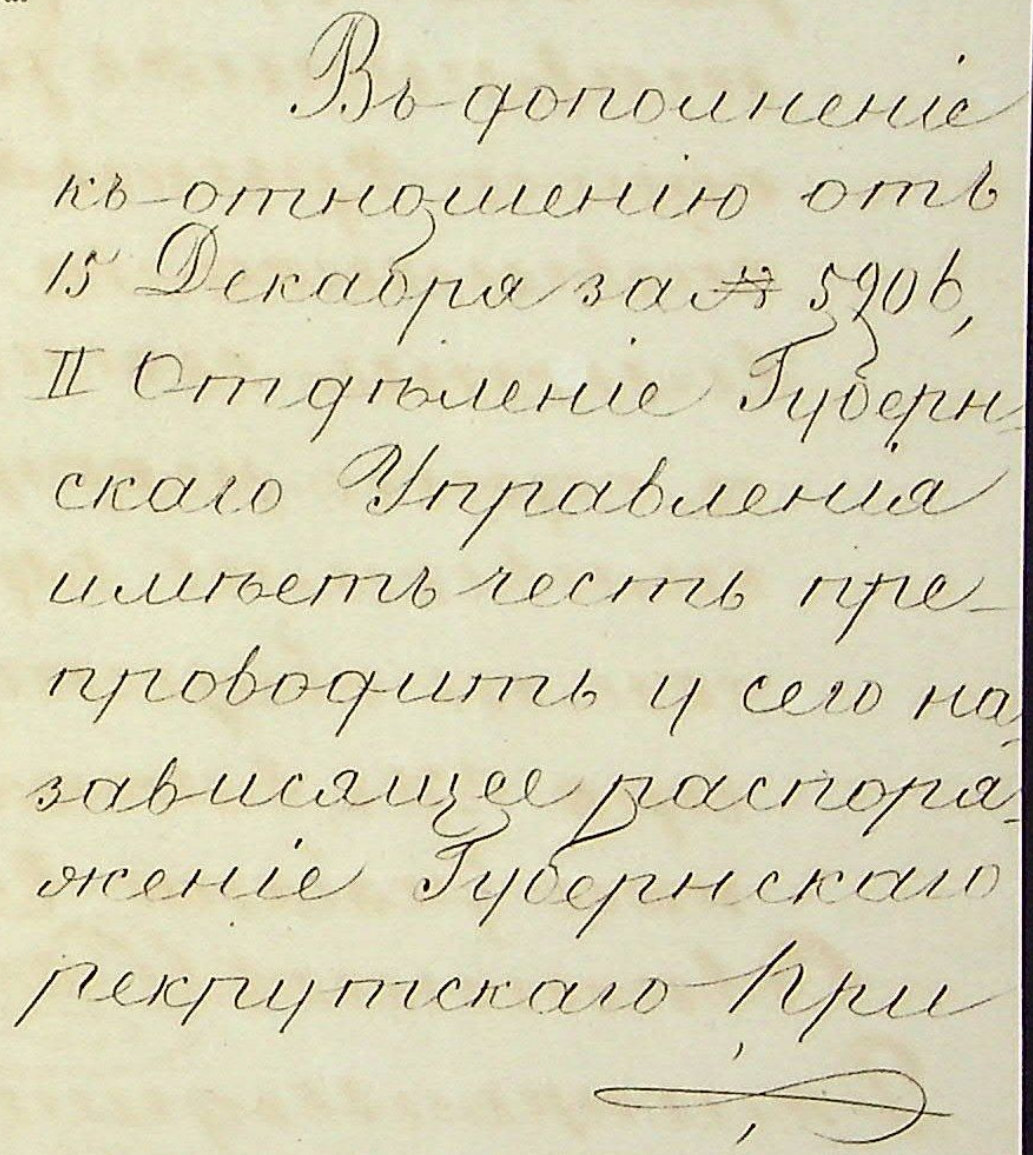 Въ дополненіе
къ отношенію отъ
15 Декабря за № 5906,
II Отдѣленіе Губерн-
скаго Управленія
имѣетъ честь пре-
проводить у сего на
зависящее распоря-
женіе Губернскаго
рекрутскаго При